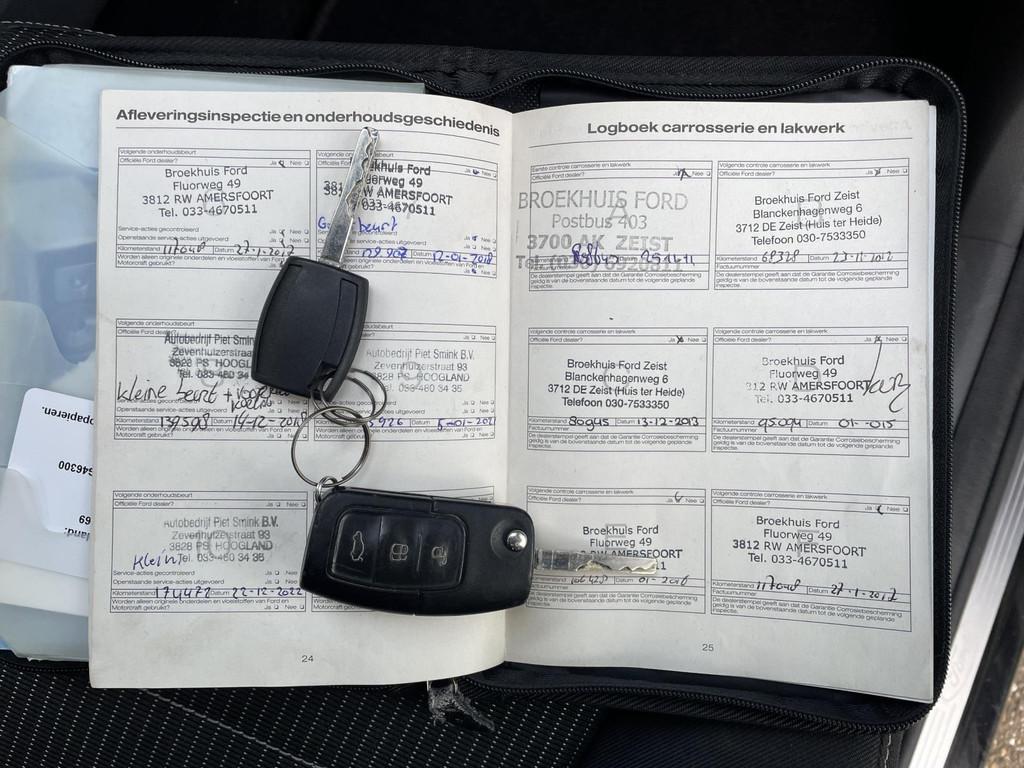 Afleveringsinspectie en onderhoudsgeschiedenis
Volgende onderhoudsbeurt
Officiële Ford dealer? Ja Nee
Broekhuis Ford
Fluorweg 49
3812 RW AMERSFOORT
Tel. 033-4670511
Service-acties gecontroleerd
Openstaande service-acties uitgevoerd Ja Nee
Kilometerstand 117048 Datum 27-1-2017
Worden alleen originele onderdelen en vloeistoffen van Ford en
Motorcraft gebruikt? Ja Nee
Volgende onderhoudsbeurt
Broekhuis Ford
Fluorweg 49
AMERSFOORT
033-4670511
beurt
Datum 12-01-2018
Volgende onderhoudsbeurt
Autobedrijf Piet Smink
Zevenhuizerstraat
3828 PS HOOGL
kleine beurt +
Openstaande service-acties uitgevoerd
Kilometerstand 139598 Datum 14-12-2018
Worden alleen originele onderdelen en vloeistoffen van Ford en
Motorcraft gebruikt?
onderhoudsbeurt
Autobedrijf Piet Smink B.V.
Zevenhuizerstraat 93
3828 PS HOOGLAND
033-480 34 35
Volgende onderhoudsbeurt
Officiële Ford dealer? Ja Nee
Autobedrijf Piet Smink B.V.
Zevenhuizerstraat 93
3828 PS HOOGLAND
Tel. 033-480 34 35
Klein
Service-acties gecontroleerd Ja Nee
Openstaande service-acties uitgevoerd Ja Nee
Kilometerstand 174472 Datum 22-12-2022
Worden alleen originele onderdelen en vloeistoffen van Ford en
Motorcraft gebruikt? Ja Nee
24
Logboek carrosserie en lakwerk
Eerste controle carrosserie en lakwerk
Officiële Ford dealer? Ja Nee
BROEKHUIS FORD
Postbus 403
3700 AK ZEIST
De dealerstempel geeft aan dat de Garantie Corrosiebescherming
geldig is van de bovenstaande datum tot de volgende geplande
inspectie.
Volgende controle carrosserie en lakwerk
Officiële Ford dealer? Ja Nee
Broekhuis Ford Zeist
Blanckenhagenweg 6
3712 DE Zeist (Huis ter Heide)
Telefoon 030-7533350
Kilometerstand 68328 Datum 23-11-2012
Factuurnummer
De dealerstempel geeft aan dat de Garantie Corrosiebescherming
geldig is van de bovenstaande datum tot de volgende geplande
inspectie.
Volgende controle carrosserie en lakwerk
Officiële Ford dealer? Ja Nee
Broekhuis Ford Zeist
Blanckenhagenweg 6
3712 DE Zeist (Huis ter Heide)
Telefoon 030-7533350
Kilometerstand 80945 Datum 13-12-2013
Factuurnummer
De dealerstempel geeft aan dat de Garantie Corrosiebescherming
geldig is van de bovenstaande datum tot de volgende geplande
inspectie.
Volgende controle carrosserie en lakwerk
Officiële Ford dealer? Ja Nee
Broekhuis Ford
Fluorweg 49
AMERSFOORT
Tel. 033-4670511
Kilometerstand 95094 Datum
Factuurnummer
De dealerstempel geeft aan dat de Garantie Corrosiebescherming
geldig is van de bovenstaande datum tot de volgende geplande
inspectie.
Volgende controle carrosserie en lakwerk
Officiële Ford dealer? Ja Nee
Broekhuis Ford
Fluorweg 49
RW AMERSFOORT
Datum 01-2016
Factuurnummer
De dealerstempel geeft aan dat de Garantie Corrosiebescherming
geldig is van de bovenstaande datum tot de volgende geplande
inspectie.
Volgende controle carrosserie en lakwerk
Officiële Ford dealer? Ja Nee
Broekhuis Ford
Fluorweg 49
3812 RW AMERSFOORT
Tel. 033-4670511
Kilometerstand 117048 Datum 27-1-2017
Factuurnummer
De dealerstempel geeft aan dat de Garantie Corrosiebescherming
geldig is van de bovenstaande datum tot de volgende geplande
inspectie.
25
opapieren.
546300
69
land.